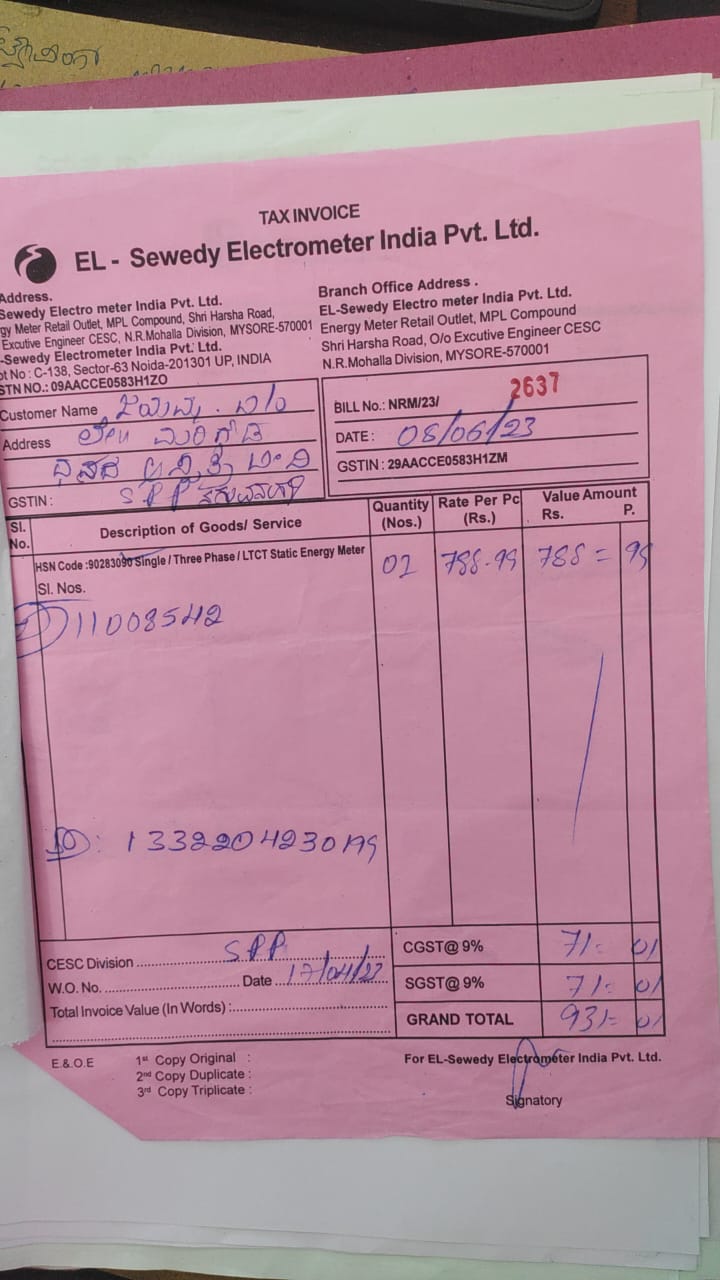 TAX INVOICE
EL - Sewedy Electrometer India Pvt. Ltd.
Address.
Sewedy Electro meter India Pvt. Ltd.
gy Meter Retail Outlet, MPL Compound, Shri Harsha Road,
Excutive Engineer CESC, N.R.Mohalla Division, MYSORE-570001
-Sewedy Electrometer India Pvt. Ltd.
ot No : C-138, Sector-63 Noida-201301 UP, INDIA
STN NO.: 09AACCE0583H1ZO
Branch Office Address .
EL-Sewedy Electro meter India Pvt. Ltd.
Energy Meter Retail Outlet, MPL Compound
Shri Harsha Road, O/o Excutive Engineer CESC
N.R.Mohalla Division, MYSORE-570001
Customer Name
Address
GSTIN : SPP
BILL No.: NRM/23/ 2637
DATE : 08/06/23
GSTIN : 29AACCE0583H1ZM
Sl. No. Description of Goods/ Service Quantity (Nos.) Rate Per Pc (Rs.) Value Amount Rs. P.
HSN Code :90283090 Single / Three Phase / LTCT Static Energy Meter 01 788.99 788 = 99
Sl. Nos.
11008542
CESC Division SPP
W.O. No. Date 17/04/23
Total Invoice Value (In Words) :
CGST@ 9% 71= 01
SGST@ 9% 71= 01
GRAND TOTAL 931= 01
E.& O.E 1st Copy Original :
2nd Copy Duplicate :
3rd Copy Triplicate :
For EL-Sewedy Electrometer India Pvt. Ltd.
Signatory